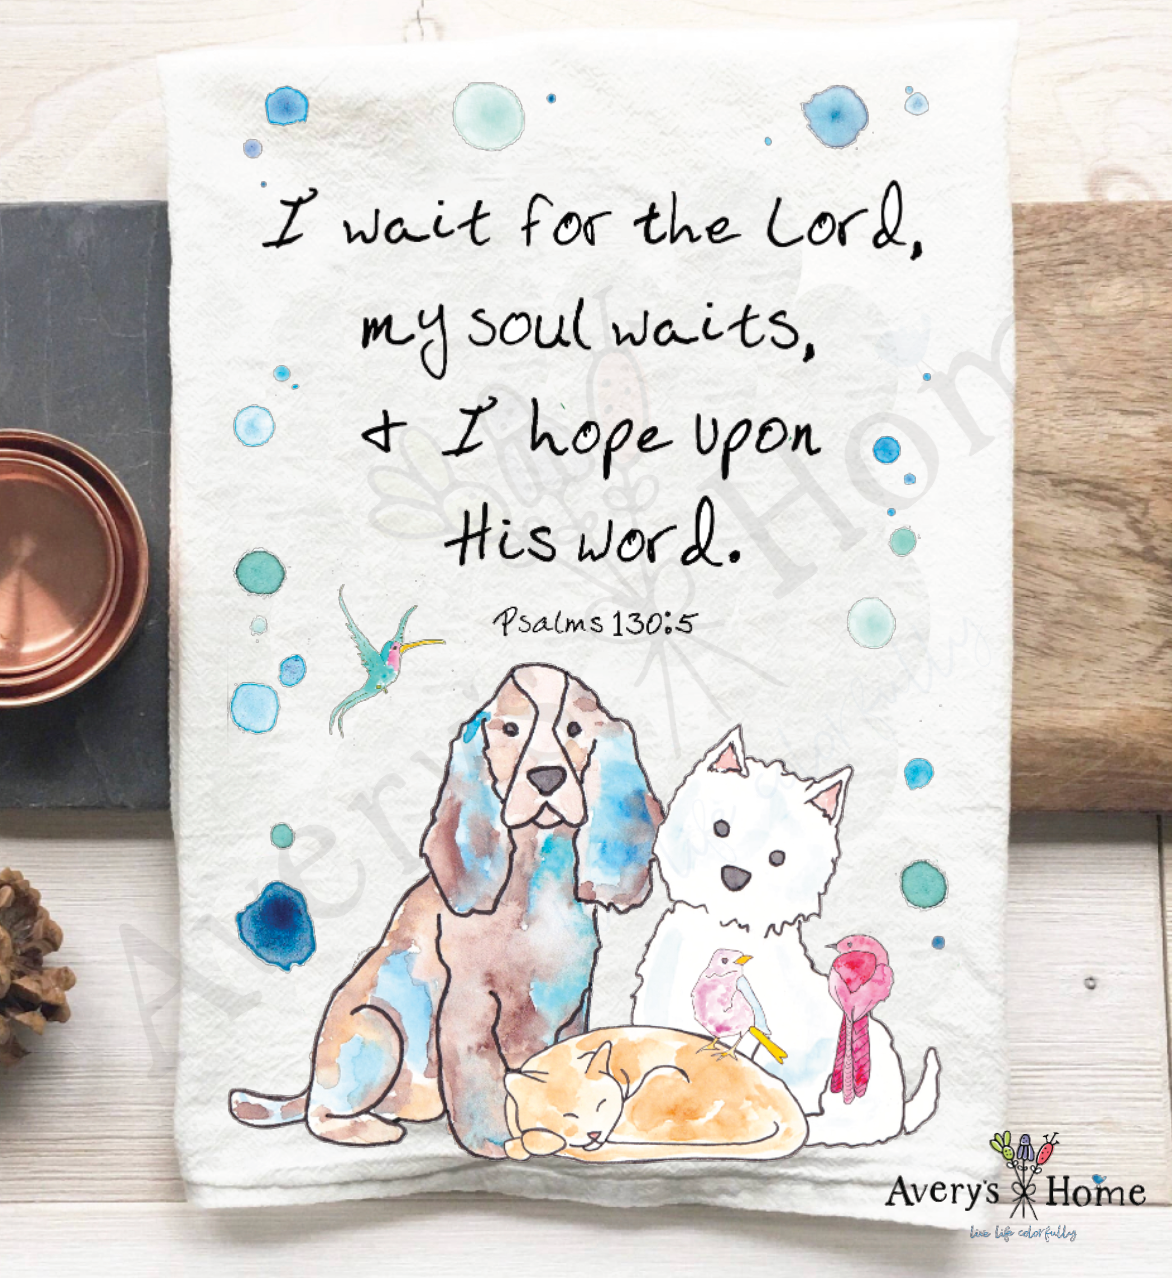 I wait for the Lord,
my soul waits,
& I hope upon
His word.
Psalms 130:5
Avery's Home
Avery's Home
live life colorfully